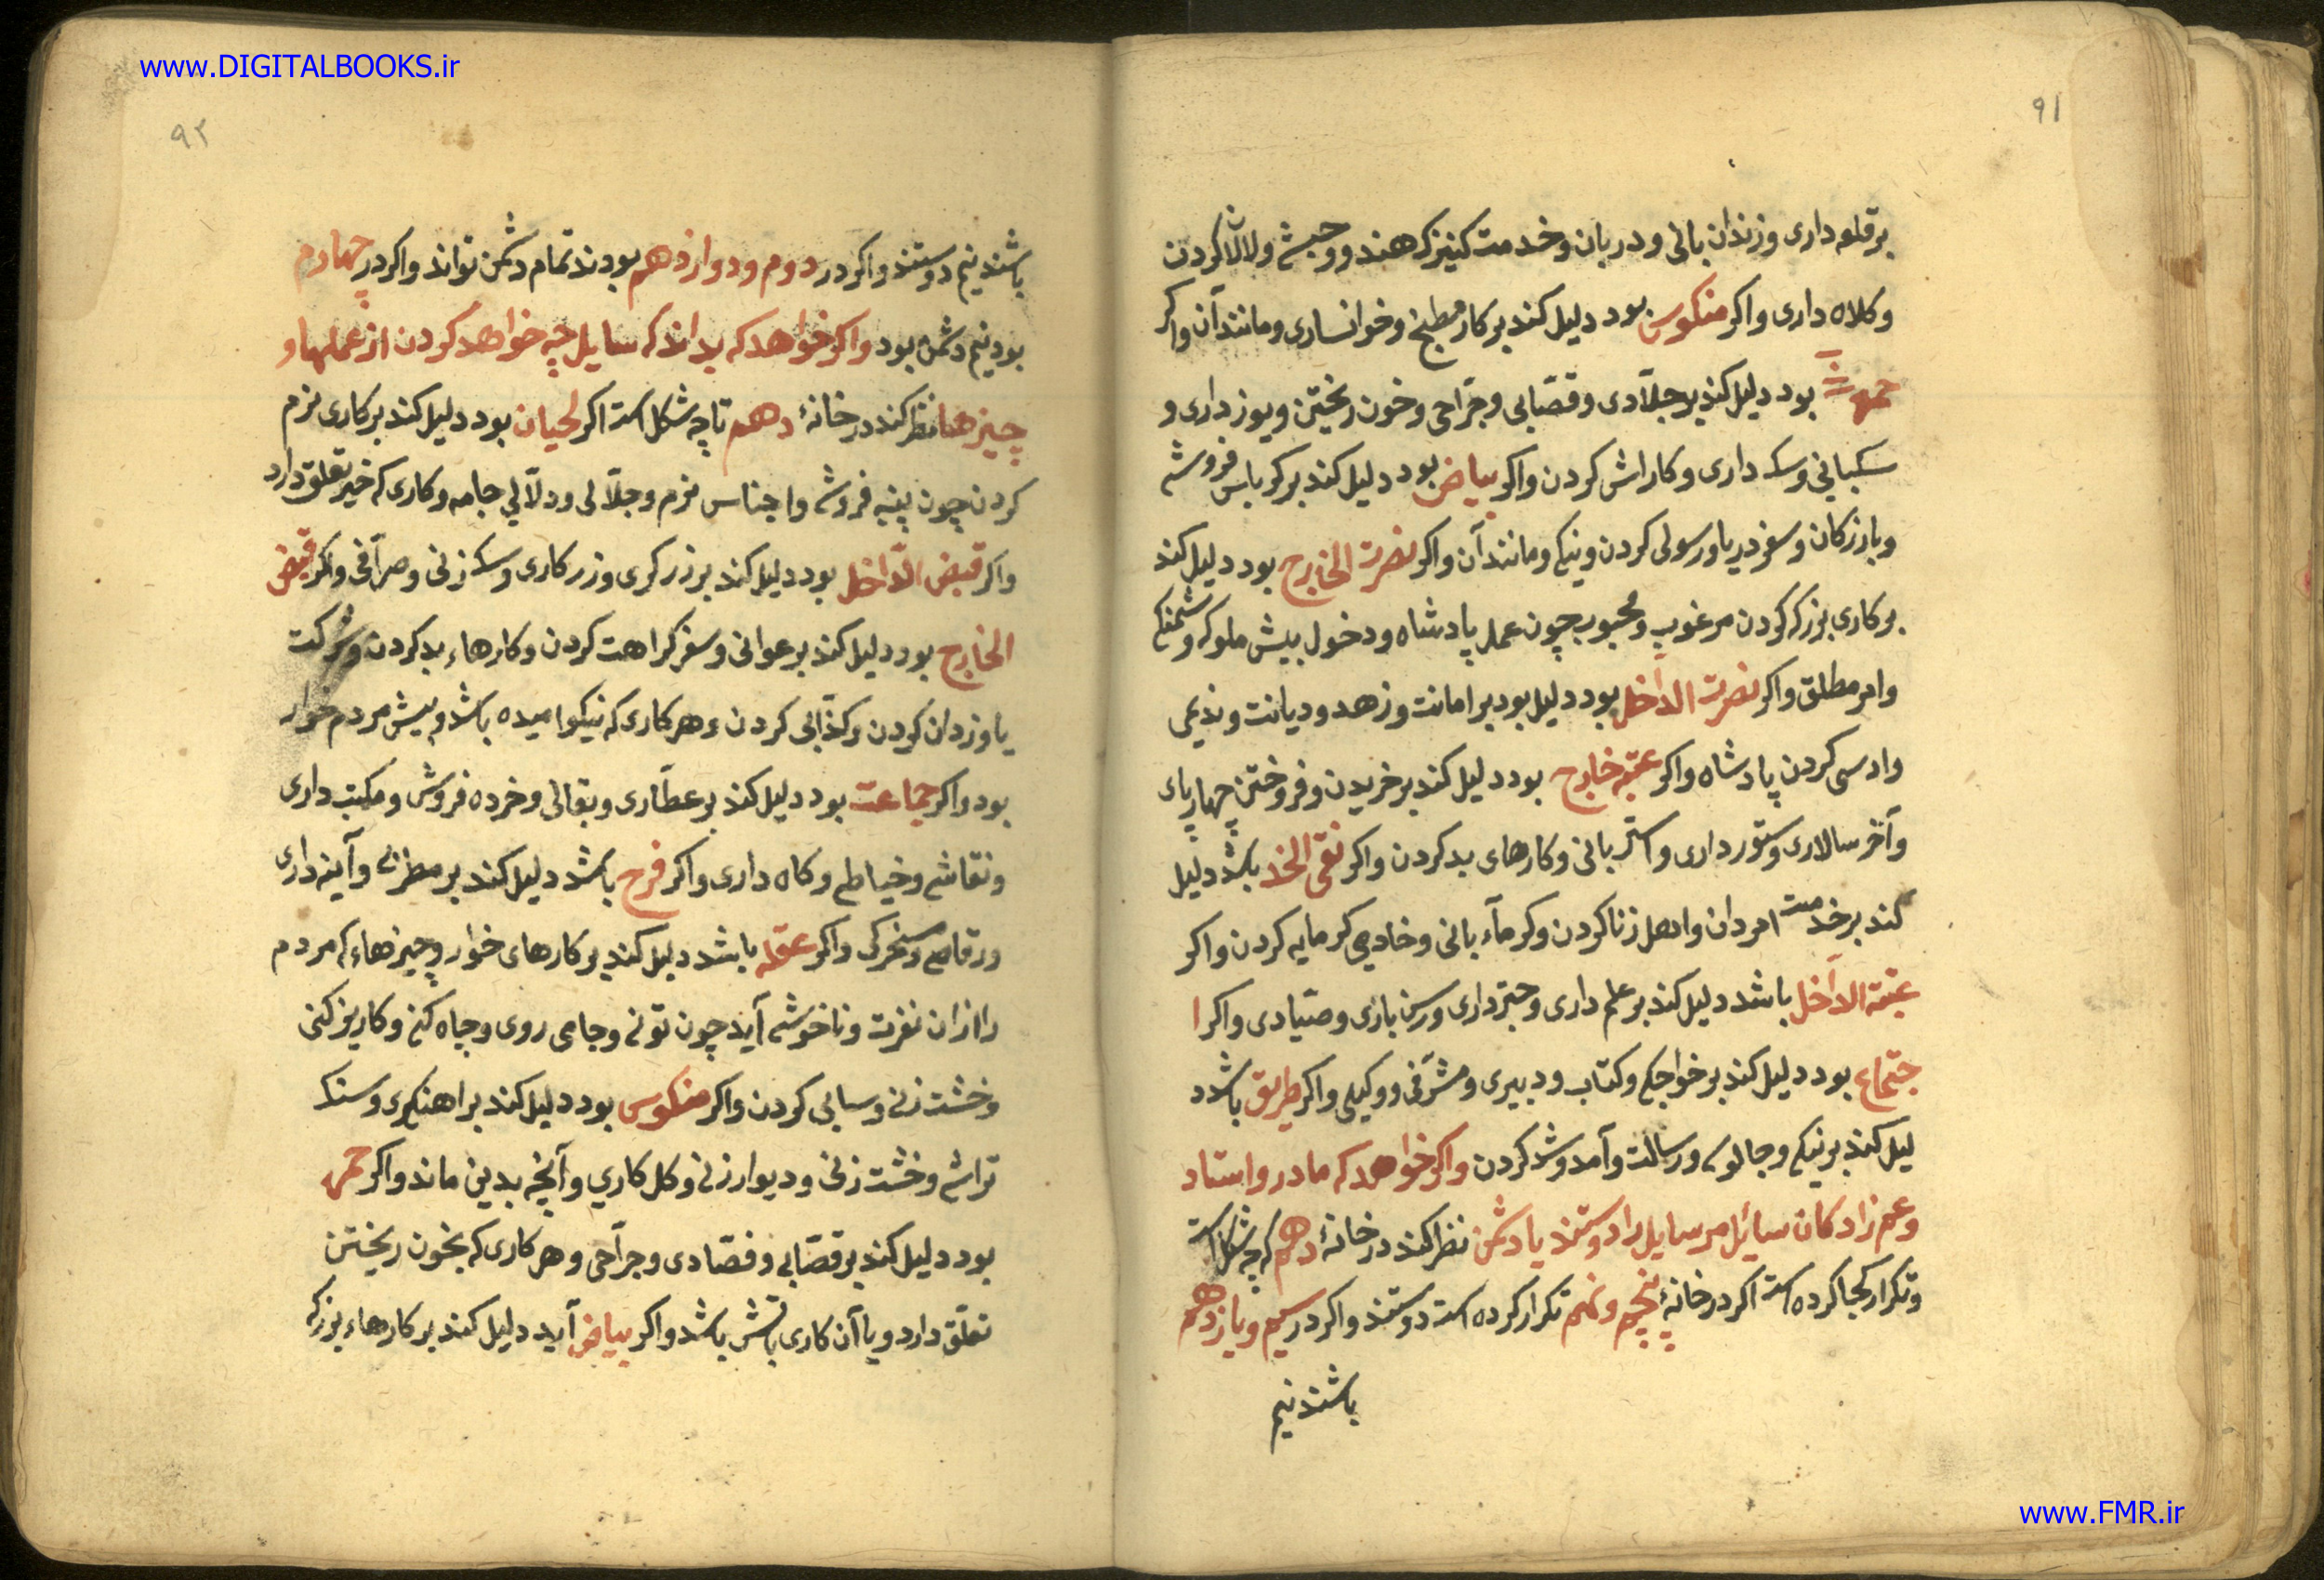 www.DIGITALBOOKS.ir
۹۱
بر قلعه داری و زندان بانی و دربان و خدمت کنیزک هندو و حبشی و لالا کردن
و کلاه داری و اکر منکوس بود دلیل کند بر کار مطبخ و خوانساری و مانند آن و اکر
حمره بود دلیل کند بر جلّادی و قصّابی و جرّاحی و خون ریختن و یوز داری و
سکبانی و سکه داری و کاراش کردن و اکر بیاض بود دلیل کند بر کرباس فروشی
و بازرکان و سفر دریا و رسولی کردن و نیکی و مانند آن و اکر نصرت الخارج بود دلیل کند
بر کاری بزرک کردن مرغوب و محبوب چون عمل پادشاه و دخول بیش ملوک و
و امر مطلق و اکر نصرت الداخل بود دلیل بود بر امانت و زهد و دیانت و ندیمی
وادسی کردن پادشاه و اکر عتبه خارج بود دلیل کند بر خریدن و فروختن چهارپای
و آخر سالاری و ستور داری و استر بانی و کارهای بد کردن و اکر نقی الخد باشد دلیل
کند بر خدمت امردان و اهل زنا کردن و کرماء بانی و خادمی کرمابه کردن و اکر
عتبة الداخل باشد دلیل کند بر علم داری و چتر داری و رسن بازی و صیّادی و اکر ا
جتماع بود دلیل کند بر خواجکی و کتاب و دبیری و مشرّفی و وکیلی و اکر طریق باشد د
لیل کند بر نیکی و جالوسی و رسالت و آمد و شد کردن و اکر خواهد که مادر و استاد
و عم زادکان سائل مر سایل را دوستند یا دشمن نظر کند در خانهٔ دهم که چه شکل است
و تکرار کجا کرده است اکر در خانهٔ پنچم و نهم تکرار کرده است دوستند و اکر در سیم و یازدهم
باشند نیم
۹۲
باشند نیم دوستند و اکر در دوم و دوازدهم بودند تمام دشمن تواند و اکر در چهارم
بود نیم دشمن بود و اکر خواهد که بداند که سایل چه خواهد کردن از عملها و
چیزها نظر کند در خانهٔ دهم تا چه شکل است اکر لحیان بود دلیل کند بر کاری نرم
کردن چون پنبه فروشی و اجناس نرم و جلّالی و دلّالی جامه و کاری که خیر تعلق دارد
و اکر قبض الداخل بود دلیل کند بر زرکری و زر کاری و سکه زنی و صرّافی و اکر قبض
الخارج بود دلیل کند بر عوانی و سفر کراهت کردن و کارهاء بد کردن و شرکت
با دزدان کردن و کذّابی کردن و هر کاری که نیکو امیده باشد و بیش مردم خوار
بود و اکر جماعت بود دلیل کند بر عطّاری و بقالی و خرده فروشی و مکتب داری
و نقاشی و خیاطی و کاه داری و اکر فرح باشد دلیل کند بر مطربی و آینه داری
و رقاصی و مسخرکی و اکر عقله باشد دلیل کند بر کارهای خوار و چیزهاء که مردم
را از آن نفرت و ناخوشی آید چون تونی و جامی روی و چاه کنی و کاریز کنی
و خشت زنی و سبابی کردن و اکر منکوس بود دلیل کند بر اهنکری و سنک
تراشی و خشت زنی و دیوار زنی و کل کاری و آنچه بدین ماند و اکر حمره
بود دلیل کند بر قصّابی و فصّادی و جرّاحی و هر کاری که بخون ریختن
تعلّق دارد و یا آن کاری باتش باشد و اکر بیاض آید دلیل کند بر کارهاء بزرک
www.FMR.ir